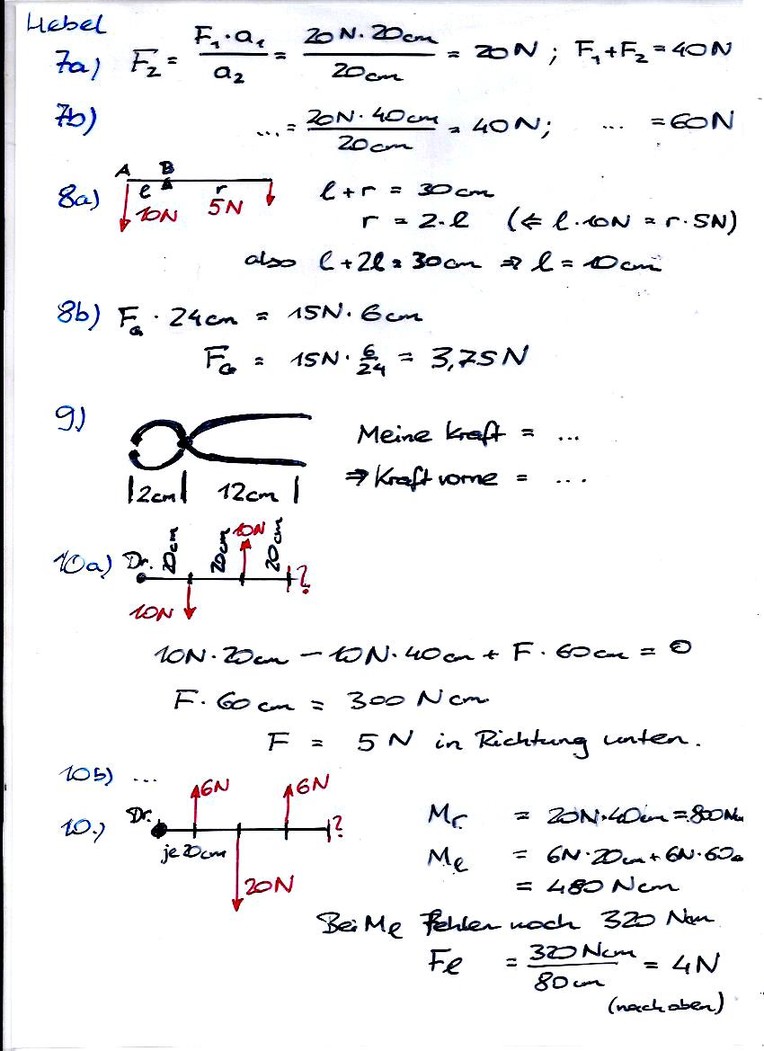 Hebel
7a) F₂ = F₁·a₁ / a₂ = 20N·20cm / 20cm = 20N ; F₁+F₂ = 40N
7b) ... = 20N·40cm / 20cm = 40N; ... = 60N
A B
8a) l r l + r = 30cm
10N 5N r = 2·l (⇐ l·10N = r·5N)
also l+2l = 30cm ⇒ l = 10cm
8b) Fₐ · 24cm = 15N·6cm
Fₐ = 15N · 6/24 = 3,75N
9.) Meine Kraft = ...
⇒ Kraft vorne = ...
|2cm| 12cm |
10a) Dr. 20cm 20cm 10N 20cm ?
10N
10N·20cm − 10N·40cm + F·60cm = 0
F·60cm = 300 Ncm
F = 5N in Richtung unten.
10b) ...
6N 6N
10.) Dr. ? Mr = 20N·40cm = 800Nm
je 20cm Ml = 6N·20cm + 6N·60c
20N = 480 Ncm
Bei Ml fehlen noch 320 Ncm
Fl = 320Ncm / 80cm = 4N
(nach oben)